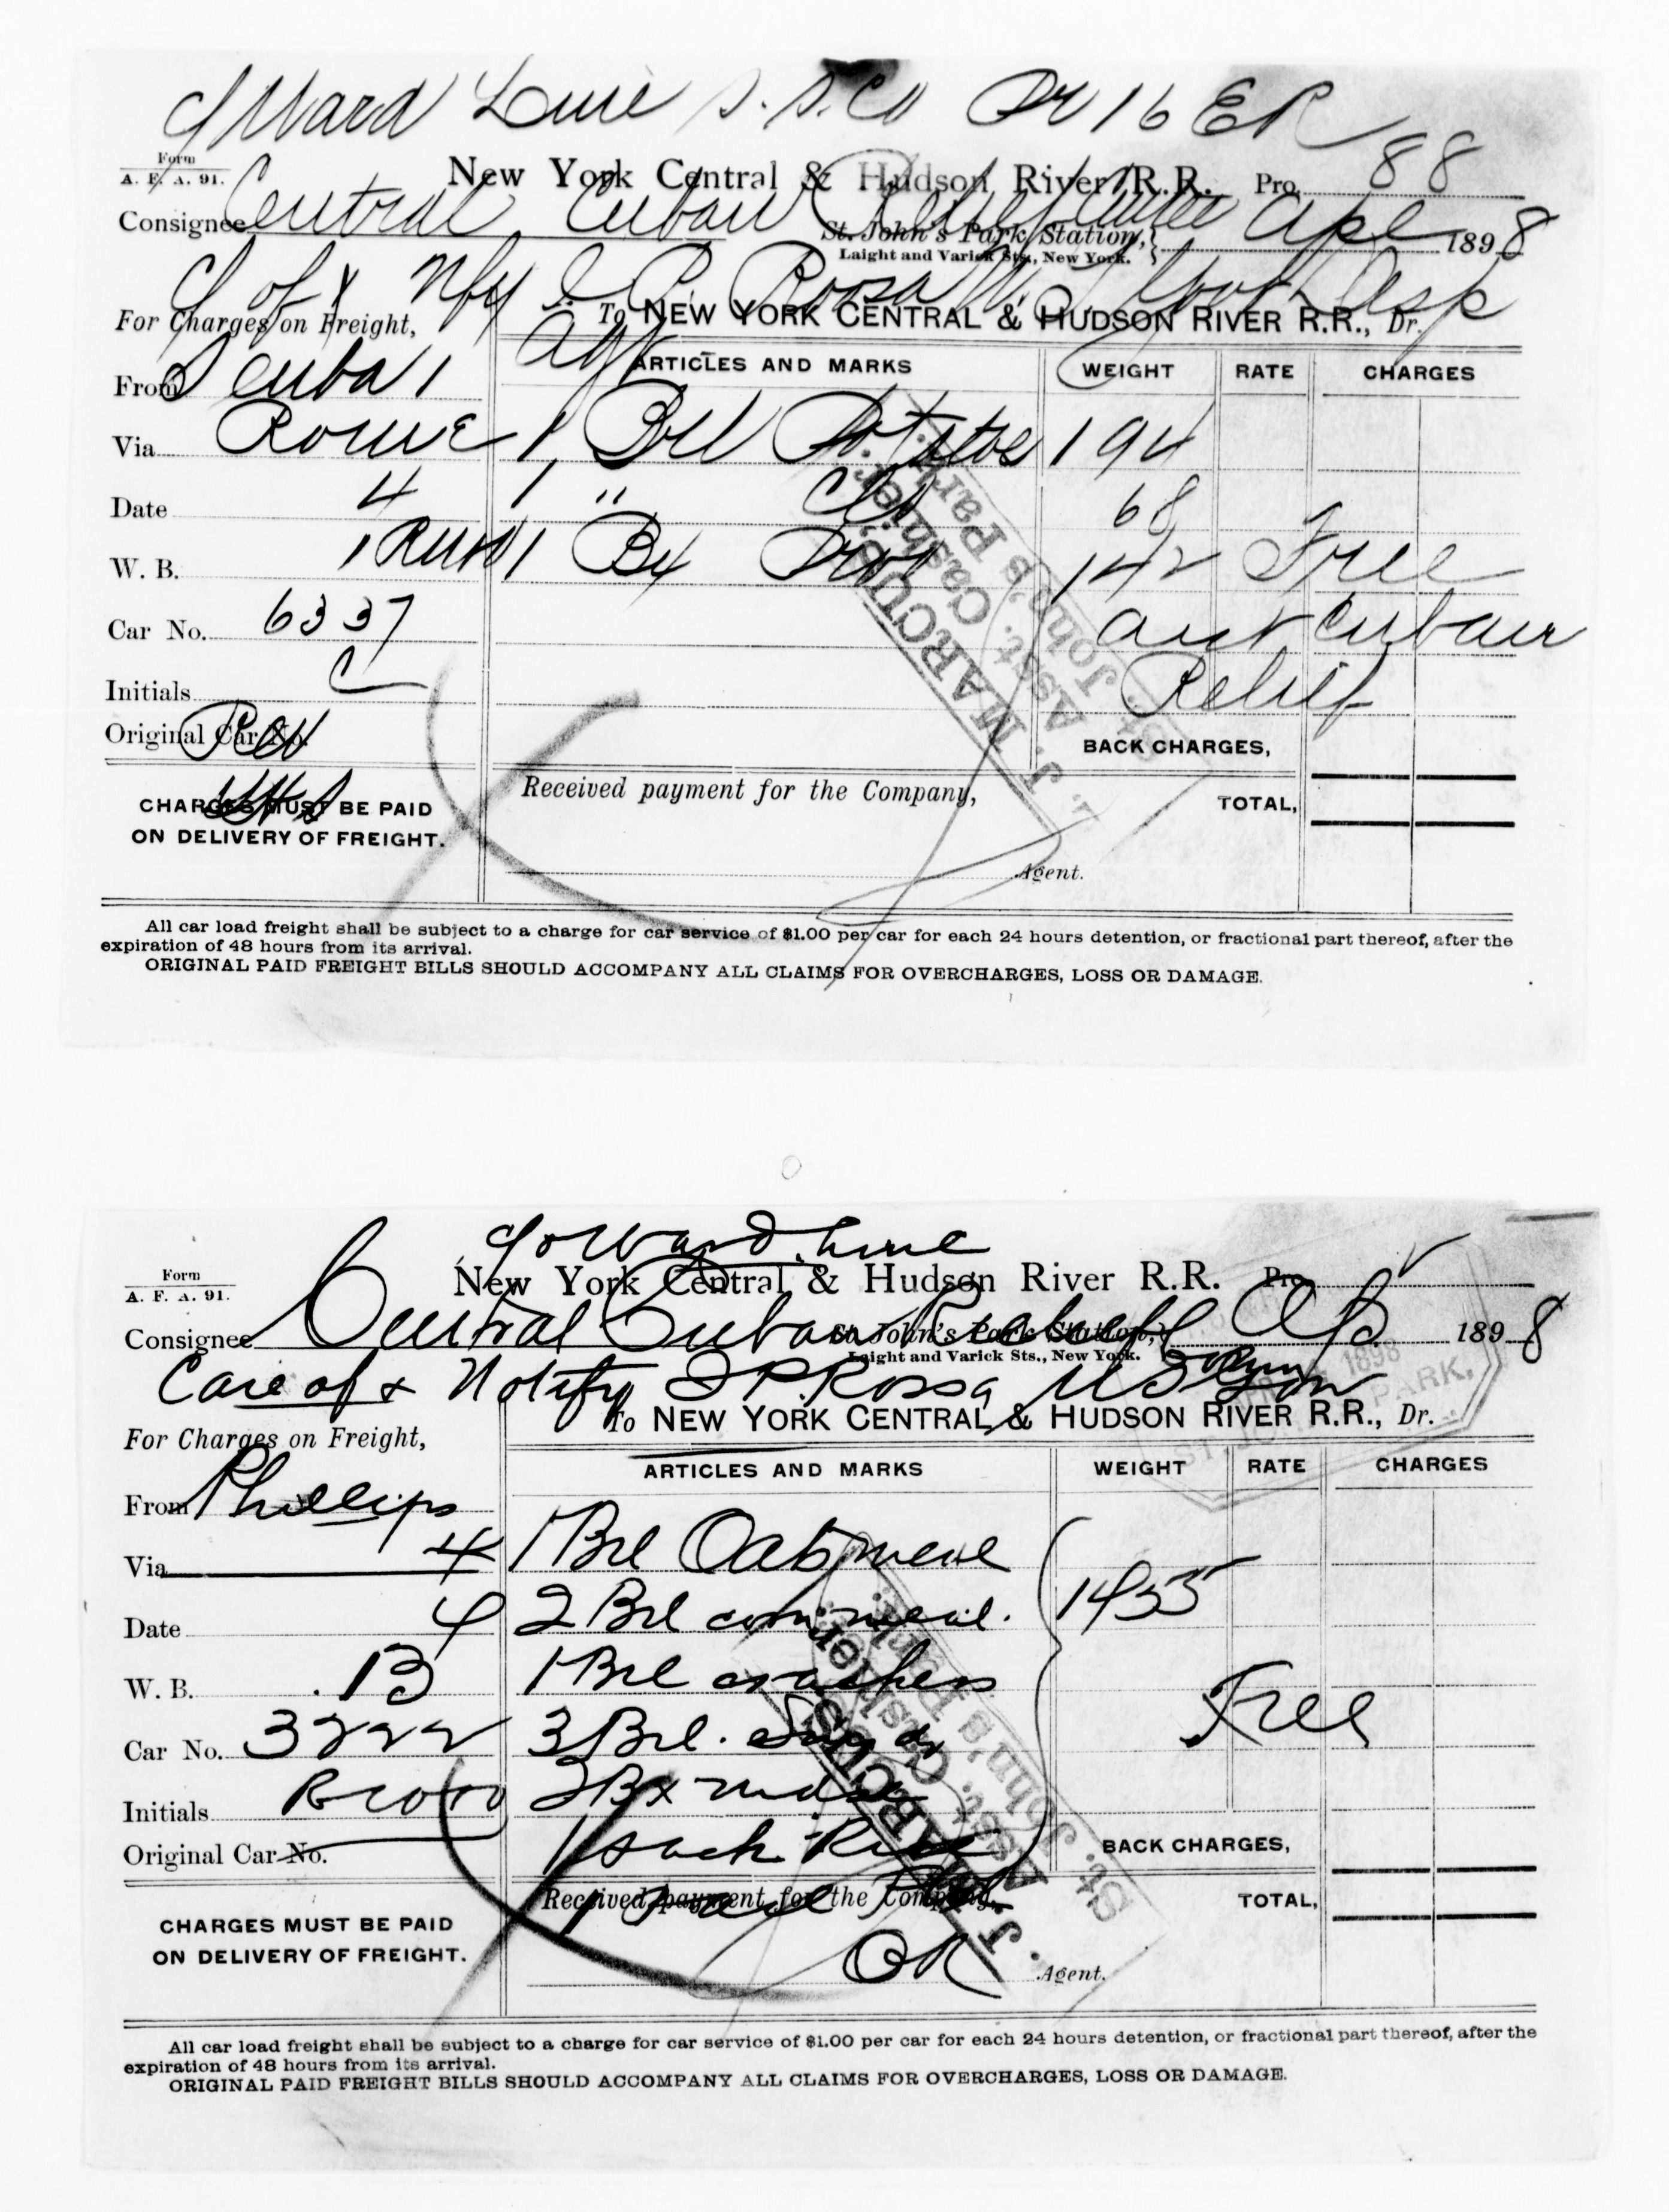 Ward Line S.S. Co Pr 16 ER
Form
A. F. A. 91.
New York Central & Hudson River R.R. Pro. 88
Consignee Central Cuban Relief Apl 1898
St. John's Park Station,
Laight and Varick Sts., New York.
C of & Nfy Rosa
For Charges on Freight,
To NEW YORK CENTRAL & HUDSON RIVER R.R., Dr.
Agt
ARTICLES AND MARKS WEIGHT RATE CHARGES
From Cuba 1
Via Rome 1 Brl Potatoes 194
Date 4 1 " 68
W. B. 1 Bx 142 Free
Car No. 6337 a/c Cuban
Initials C Relief
Original Car No.
BACK CHARGES,
CHARGES MUST BE PAID
ON DELIVERY OF FREIGHT.
Received payment for the Company,
TOTAL,
Agent.
J. MARCUS,
Asst. Cashier.
St. John's Park.
All car load freight shall be subject to a charge for car service of $1.00 per car for each 24 hours detention, or fractional part thereof, after the
expiration of 48 hours from its arrival.
ORIGINAL PAID FREIGHT BILLS SHOULD ACCOMPANY ALL CLAIMS FOR OVERCHARGES, LOSS OR DAMAGE.
Ward Line
Form
A. F. A. 91.
New York Central & Hudson River R.R. Pro.
Consignee Central Cuban Relief 1898
St. John's Park Station,
Laight and Varick Sts., New York.
Care of & Notify Rossa
To NEW YORK CENTRAL & HUDSON RIVER R.R., Dr.
For Charges on Freight,
ARTICLES AND MARKS WEIGHT RATE CHARGES
From Phillips
Via 4 1 Brl Oatmeal
Date 4 2 Brl cornmeal. 1455
W. B. 13 1 Brl crackers
Free
Car No. 3222 3 Brl.
Initials 2 Bx mdse
Original Car No. 1 sack Rice
BACK CHARGES,
CHARGES MUST BE PAID
ON DELIVERY OF FREIGHT.
Received payment for the Company,
TOTAL,
OK
Agent.
J. MARCUS,
Asst. Cashier.
St. John's Park.
All car load freight shall be subject to a charge for car service of $1.00 per car for each 24 hours detention, or fractional part thereof, after the
expiration of 48 hours from its arrival.
ORIGINAL PAID FREIGHT BILLS SHOULD ACCOMPANY ALL CLAIMS FOR OVERCHARGES, LOSS OR DAMAGE.